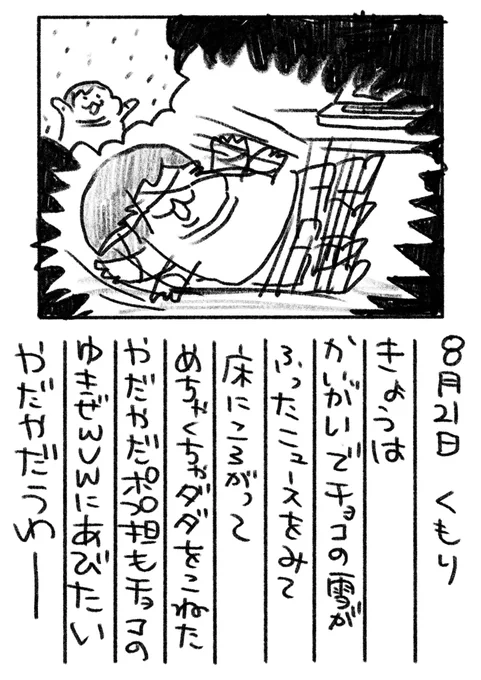 8月21日 くもり
きょうは
かいがいでチョコの雪が
ふったニュースをみて
床にころがって
めちゃくちゃダダをこねた
やだやだポプ担もチョコの
ゆきぜんしんにあびたい
やだやだうわーー